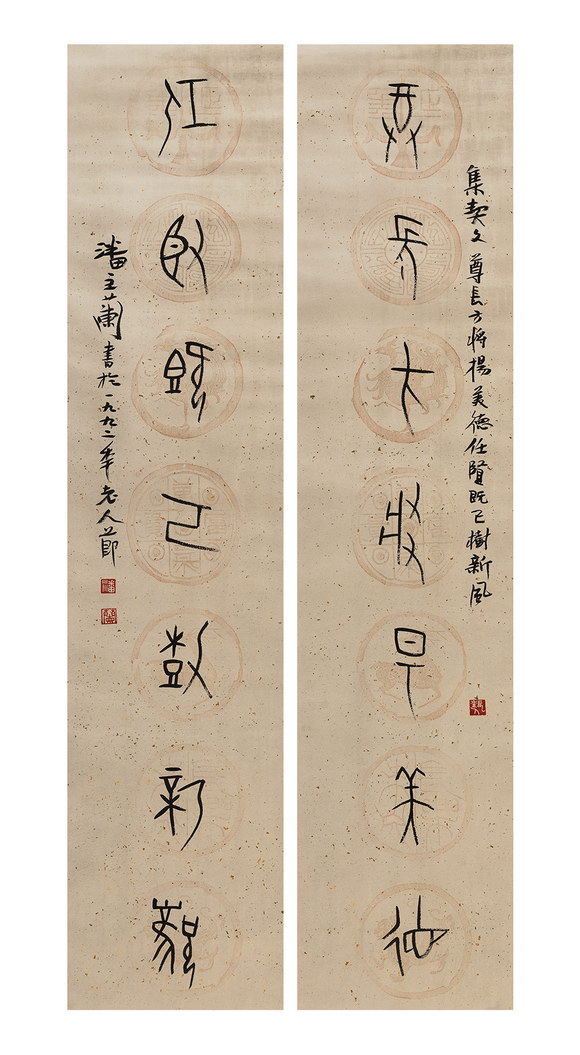 集契文 尊長方將揚美德任賢既已樹新風
尊長方將揚美德
任賢既已樹新風
潘主蘭書於一九九二年老人節